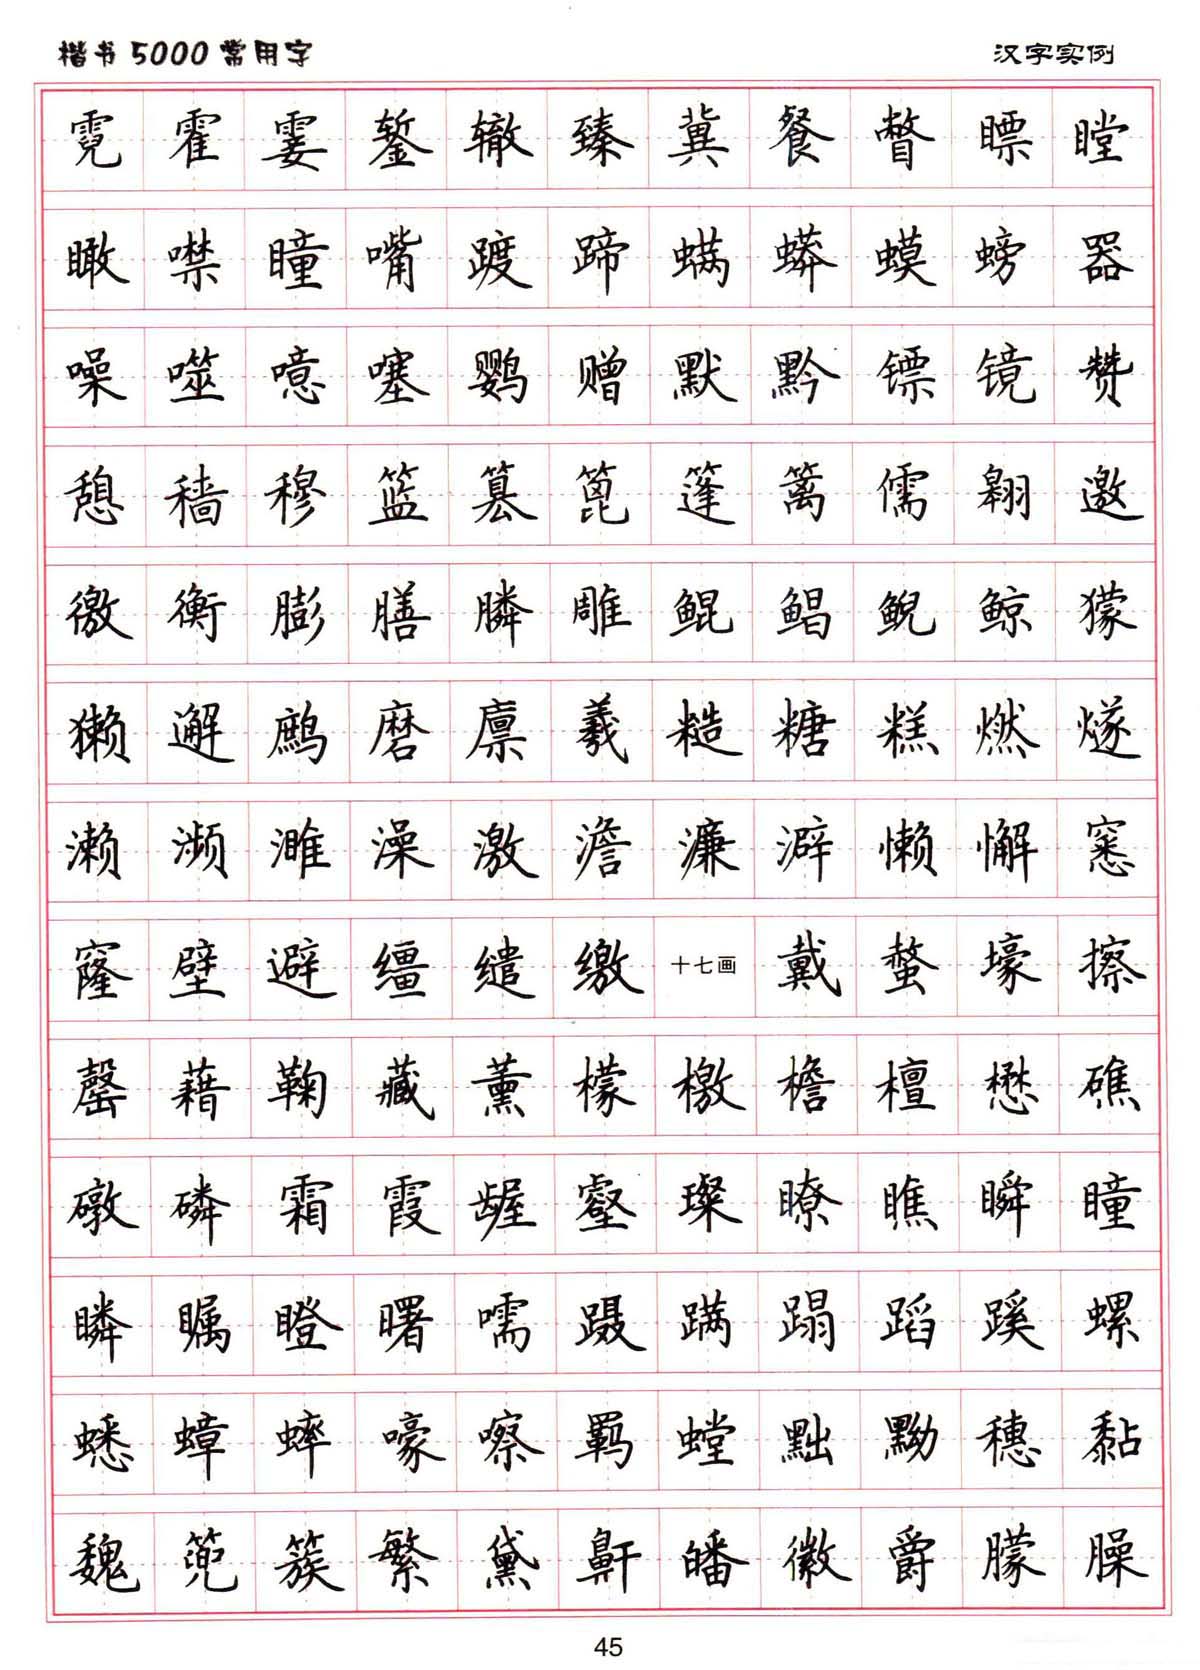 楷书5000常用字 汉字实例
霓霍霎錾辙臻冀餐瞥瞟瞠
瞰噤瞳嘴踱蹄螨蟒蟆螃器
噪噬噫噻鹦赠默黔镖镜赞
憩穑穆篮篡篦篷篱儒翱邀
徼衡膨膳膦雕鲲鲳鲵鲸獴
獭邂鹧磨廪羲糙糖糕燃燧
濑濒濉澡激澹濂澼懒懈窸
窿壁避缰缱缴十七画戴螫壕擦
罄藉鞠藏薰檬檄檐檀懋礁
礅磷霜霞龌壑璨瞭瞧瞬瞳
瞵瞩瞪曙嚅蹑蹒蹋蹈蹊螺
蟋蟑蟀嚎嚓羁螳黜黝穗黏
魏篼簇繁黛鼾皤徽爵朦臊
45